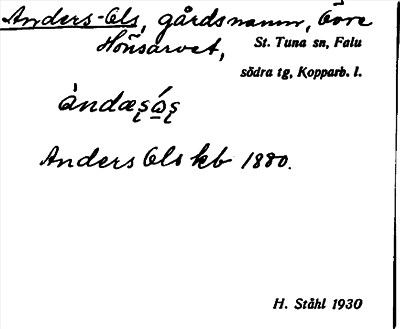 Anders-Ols, gårdsnamn, Övre
Honsarvet, St. Tuna sn, Falu
södra tg, Kopparb. l.
Anders Ols kb 1880.
H. Ståhl 1930